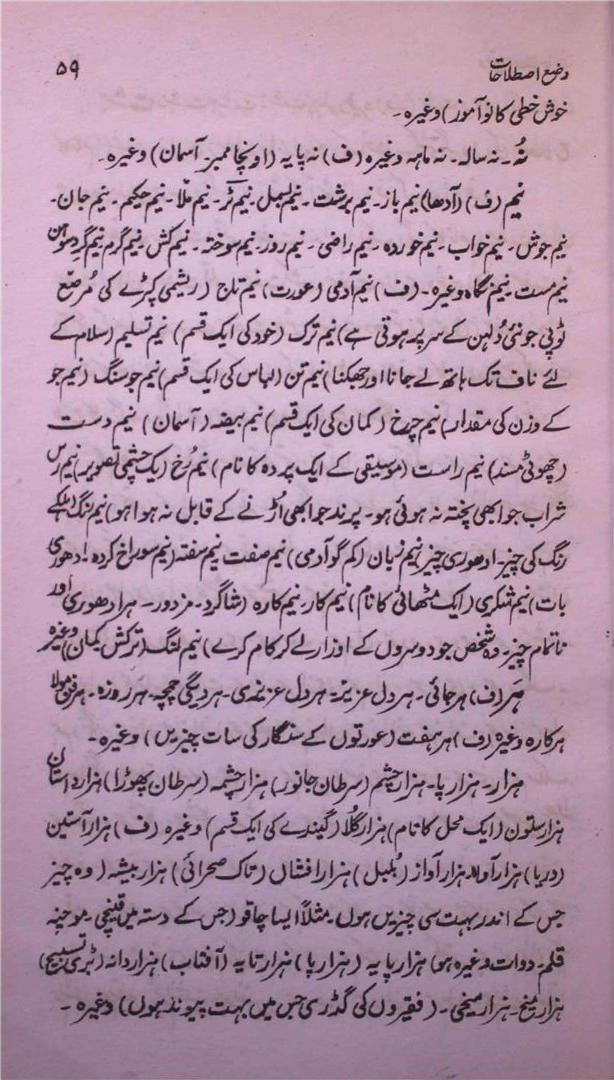 وضع اصطلاحات ۵۹
خوش خطی کا نو آموز) وغیرہ۔
نُہ۔ نہ سالہ۔ نہ ماہہ وغیرہ (ف) نہ پایہ (اونچا ممبر۔ آسمان) وغیرہ۔
نیم (ف) (آدھا) نیم باز۔ نیم برشت۔ نیم بسمل۔ نیم تر۔ نیم ملّا۔ نیم حکیم۔ نیم جان۔
نیم جوش۔ نیم خواب۔ نیم خوردہ۔ نیم راضی۔ نیم روز۔ نیم سوختہ۔ نیم کش۔ نیم گرم۔ نیم گرد سوہن
نیم مست۔ نیم نگاہ وغیرہ۔ (ف) نیم آدمی (عورت) نیم تاج (ریشمی کپڑے کی مُرصّع
ٹوپی جو نئی دُلہن کے سر پر ہوتی ہے) نیم ترک (خود کی ایک قسم) نیم تسلیم (سلام کے
لئے ناف تک ہاتھ لے جانا اور جھکنا) نیم تن (لباس کی ایک قسم) نیم جو سنگ (نیم جو
کے وزن کی مقدار) نیم چرخ (کمان کی ایک قسم) نیم بیضہ (آسمان) نیم دست
(چھوٹی مسند) نیم راست (موسیقی کے ایک پردہ کا نام) نیم رُخ (یک چشمی تصویر) نیم رس
شراب جو ابھی پختہ نہ ہوئی ہو۔ پرند جو ابھی اُڑنے کے قابل نہ ہوا ہو) نیم رنگ (ہلکے
رنگ کی چیز۔ ادھوری چیز) نیم زبان (کم گو آدمی) نیم صفت نیم سفتہ (نیم سوراخ کردہ۔ ادھوری
بات) نیم شکری (ایک مٹھائی کا نام) نیم کار۔ نیم کارہ (شاگرد۔ مزدور۔ ہر ادھوری اور
ناتمام چیز۔ وہ شخص جو دوسروں کے اوزار لے کر کام کرے) نیم لنگ (ترکش کمان) وغیرہ
ہَر (ف) ہر جائی۔ ہر دل عزیز۔ ہر دل عزیزی۔ ہر دیگی چمچہ۔ ہر روزہ۔ ہر فن مولا
ہرکارہ وغیرہ (ف) ہر ہفت (عورتوں کے سنگار کی سات چیزیں) وغیرہ۔
ہزار۔ ہزار پا۔ ہزار چشم (سرطان جانور) ہزار چشمہ (سرطان پھوڑا) ہزار داستان
ہزار ستون (ایک محل کا نام) ہزار گُلا (گیندے کی ایک قسم) وغیرہ (ف) ہزار آستین
(دریا) ہزار آوا۔ ہزار آواز (بُلبل) ہزار افشاں (تاک صحرائی) ہزار بیشہ (وہ چیز
جس کے اندر بہت سی چیزیں ہوں۔ مثلاً ایسا چاقو (جس کے دستہ میں قینچی۔ موچنہ
قلم۔ دوات وغیرہ ہو) ہزار پایہ (ہزار پا) ہزار تایہ (آفتاب) ہزار دانہ (بڑی تسبیح)
ہزار میخ۔ ہزار میخی۔ (فقیروں کی گدڑی جس میں بہت پیوند ہوں) وغیرہ۔